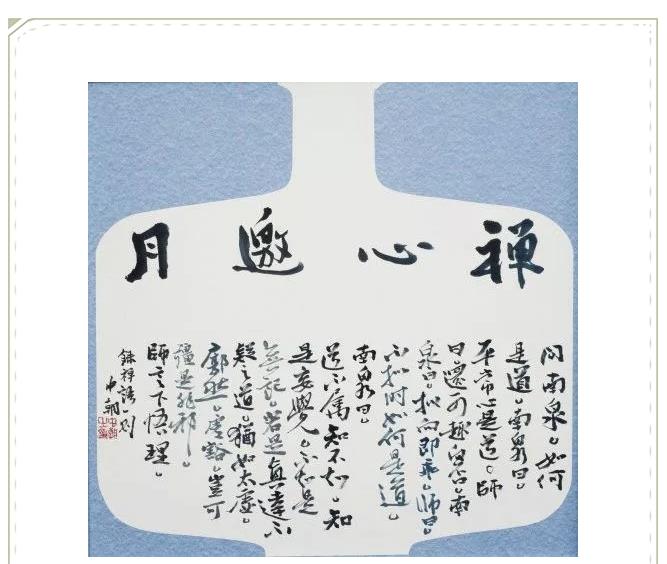 禅心邀月
问南泉。如何
是道。南泉曰。
平常心是道。师
曰還可趣向否。南
泉曰。拟向即乖。师曰。
不拟时如何是道。
南泉曰。
道不属知不知。知
是妄覺。不知是
無記。若是真達不
疑之道。猶如太虚。
廓然。虚豁。豈可
疆是非邪。
師言下悟理。
錄禅語一则